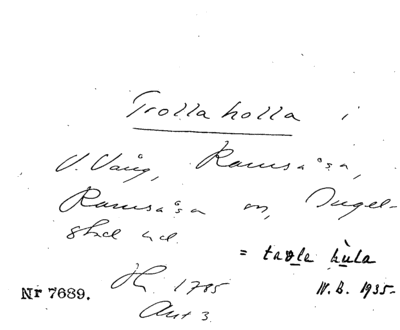 Trolla holla i
V. Vång, Ramsåsa,
Ramsåsa sn, Ingel-
stad hd.
= tadle hula
Nr 7689.
1785
N.B. 1935-
Akt 3